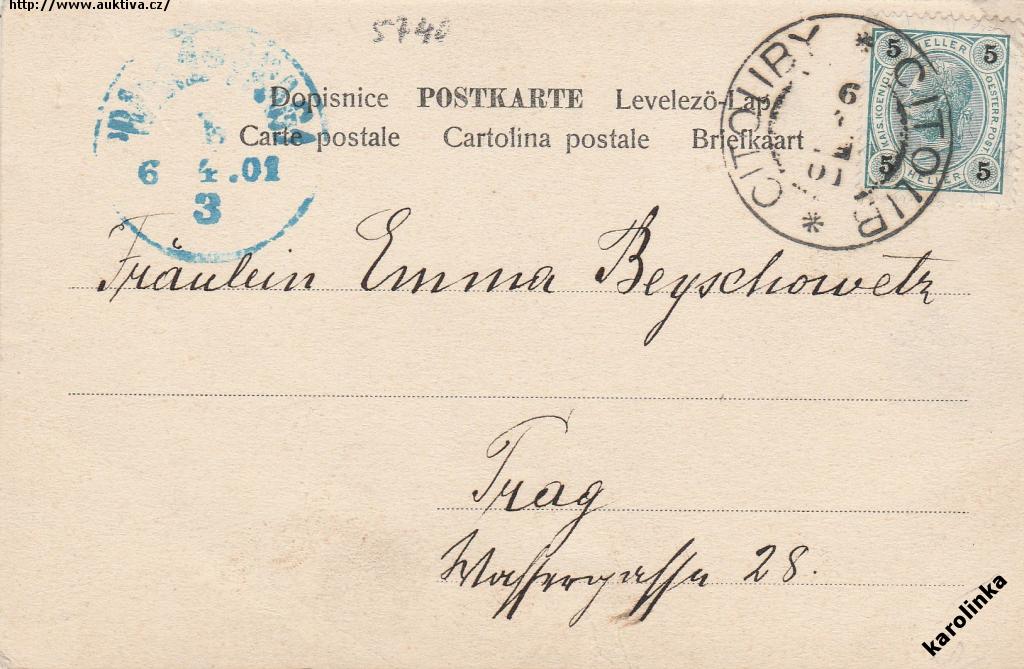 http://www.auktiva.cz/
5740
Dopisnice POSTKARTE Levelező-Lap
Carte postale Cartolina postale Briefkaart
6 4.01
3
* CITOLIBY * CITOLIB
6
01
5 HELLER 5
KAIS. KOENIGL. OESTERR. POST
5 HELLER 5
Fräulein Emma Beyschowetz
Prag
Wassergasse 28.
karolinka